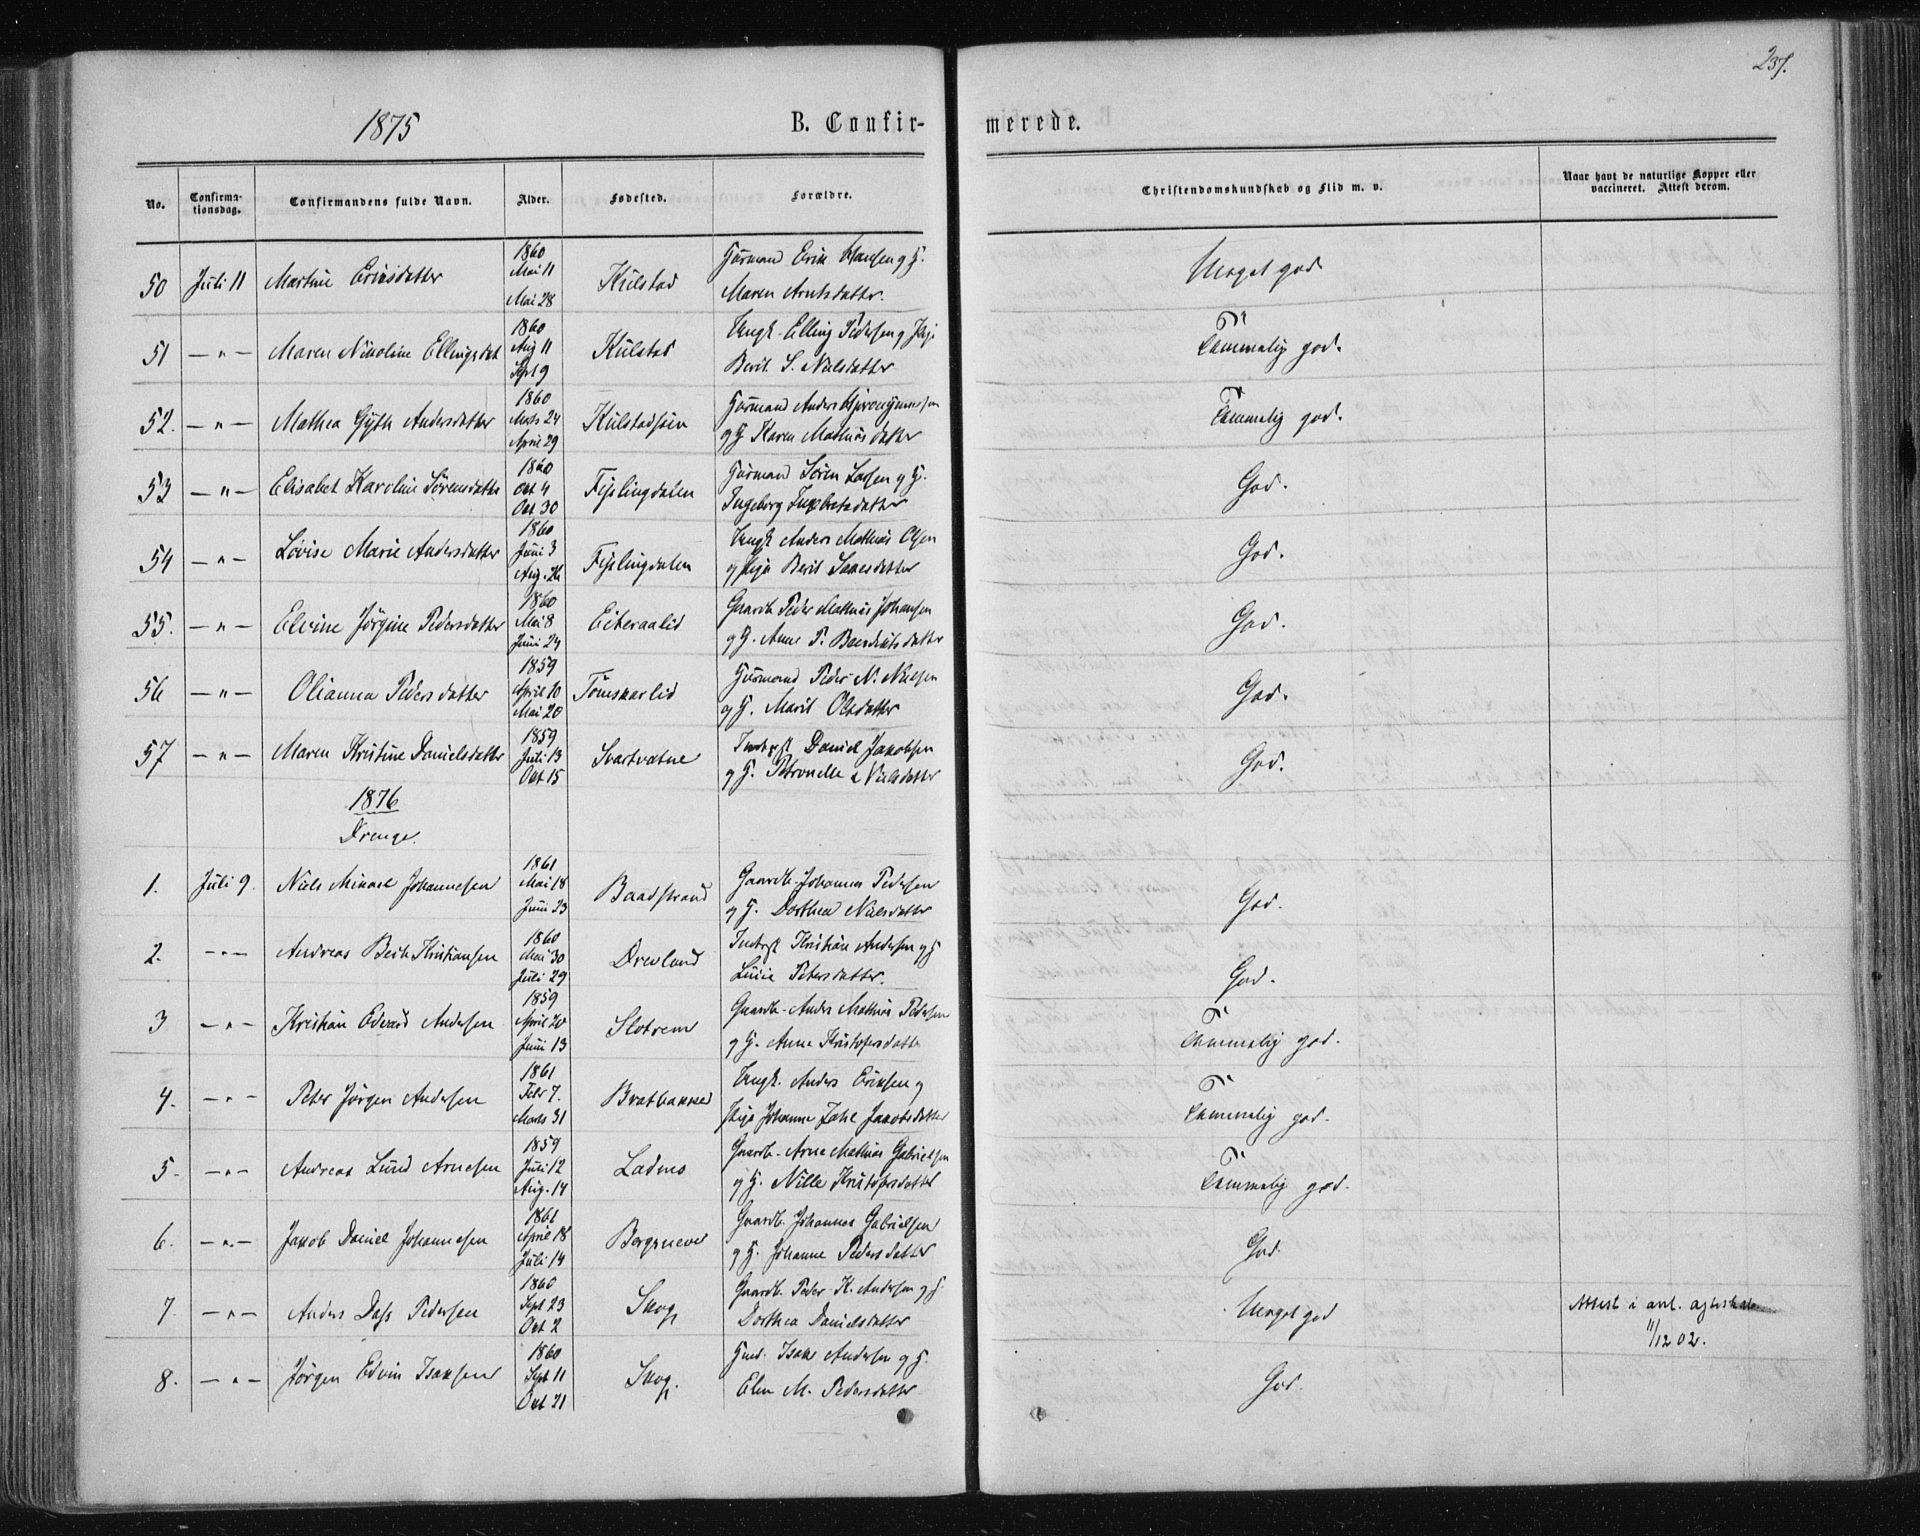 237.
1875
B. Confir- merede.
No. Confirmationsdag. Confirmandens fulde Navn. Alder. Fødested. Forældre. Christendomskundskab og Flid m. v. Naar havt de naturlige Kopper eller vaccineret. Attest derom.
50 Juli 11 Martine Eriksdatter 1860 Mai 11 Mai 28 Kulstad Huusmand Erik Hansen og H. Maren Arntsdatter. Meget god
51 — " — Maren Nikoline Ellingsdat 1860 Aug 11 Sept 9 Kulstad Ungk. Elling Pedersen og Pige Berit S. Nielsdatter Temmelig god.
52. — " — Mathea Gyth Andersdatter 1860 Marts 24 April 29 Kulstadsjøen Huusmand Anders Hieronymussen og H. Karen Mathiasdatter Temmelig god.
53 — " — Elisabet Karoline Sørensdatter 1860 Oct 4 Oct 30 Fiplingdalen Huusmand Søren Larsen og H. Ingeborg Ingebretsdatter God.
54 — " — Lovise Marie Andersdatter 1860 Juni 3 Aug. 26 Fiplingdalen Ungk Anders Mathias Olsen og Pige Berit Isaksdatter God.
55. — " — Elvine Jørgine Pedersdatter 1860 Mai 8 Juni 24 Eiteraalid Gaardb. Peder Mathias Johansen og H. Anne P. Bendiktsdatter God.
56 — " — Olianna Pedersdatter 1859 April 10 Mai 20 Tømskarlid Huusmand Peder N. Nielsen og H. Marit Olsdatter God.
57 — " — Maren Kristine Danielsdatter 1859 Juli 13 Oct 15 Svartvatne Inderst Daniel Jakobsen og H. Petronelle Nielsdatter God.
1876
Drenge.
1. Juli 9. Niels Mikael Johannesen 1861 Mai 18 Juni 23 Baadstrand Gaardb. Johannes Pedersen og H. Dorthea Nielsdatter God.
2. — " — Andreas Kristiansen 1860 Mai 30 Juli 29 Drevland Inderst Kristian Andersen og H Petersdatter. God.
3 — " — Kristian Edvard Andersen 1859 April 20 Juni 13 Slotrem Gaardb. Anders Mathias Pedersen og H. Anne Kristofersdatter Temmelig god.
4. — " — Peter Jørgen Andersen 1861 Febr 7. Marts 31 Bratbakked Ungk. Anders Eriksen og Pige Johanne Jakobsdatter Temmelig god.
5. — " — Andreas Lund Arnesen 1859 Juli 12 Aug. 14 Ladmo Gaardb. Arne Mathias Gabrielsen og H. Nille Kristofersdatter Temmelig god.
6. — " — Jakob Daniel Johannesen 1861 April 18 Juli 14 Bergsnever Gaardb. Johannes Gabrielsen og H. Johanne Pedersdatter God.
7. — " — Anders Dass Pedersen 1860 Sept 23 Oct 2 Skog Gaardb. Peder K. Andersen og H Dorthea Danielsdatter Meget god Attest i anl. 11/12 02.
8. — " — Jørgen Edvin Isaksen 1860 Sept 11 Oct 21 Skog. Isaks Andersen og H. Elen M. Pedersdatter God.